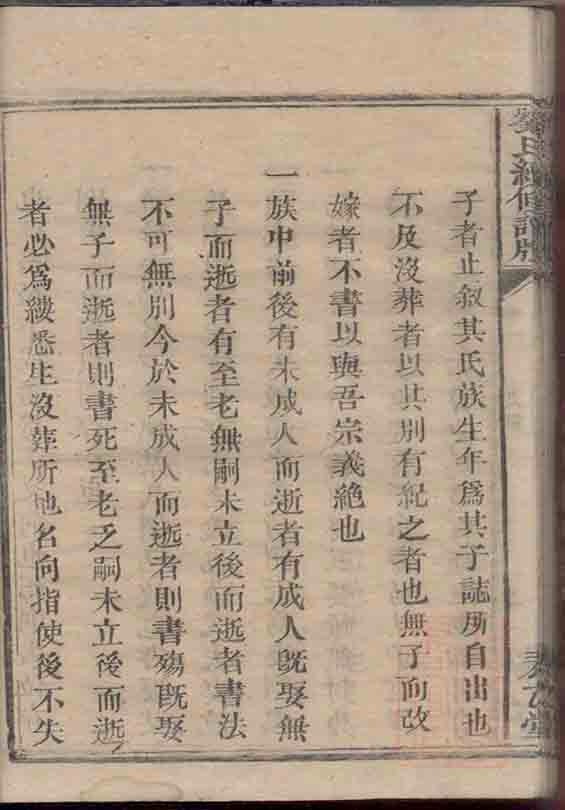 氏續修譜
子者止敘其氏族生年爲其子誌所自出也
不及沒葬者以其別有紀之者也無子而改
嫁者不書以與吾宗義絶也
一族中前後有未成人而逝者有成人既娶無
子而逝者有至老無嗣未立後而逝者書法
不可無別今於未成人而逝者則書殤既娶
無子而逝者則書死至老乏嗣未立後而逝
者必爲縷悉生沒葬所地名向指使後不失